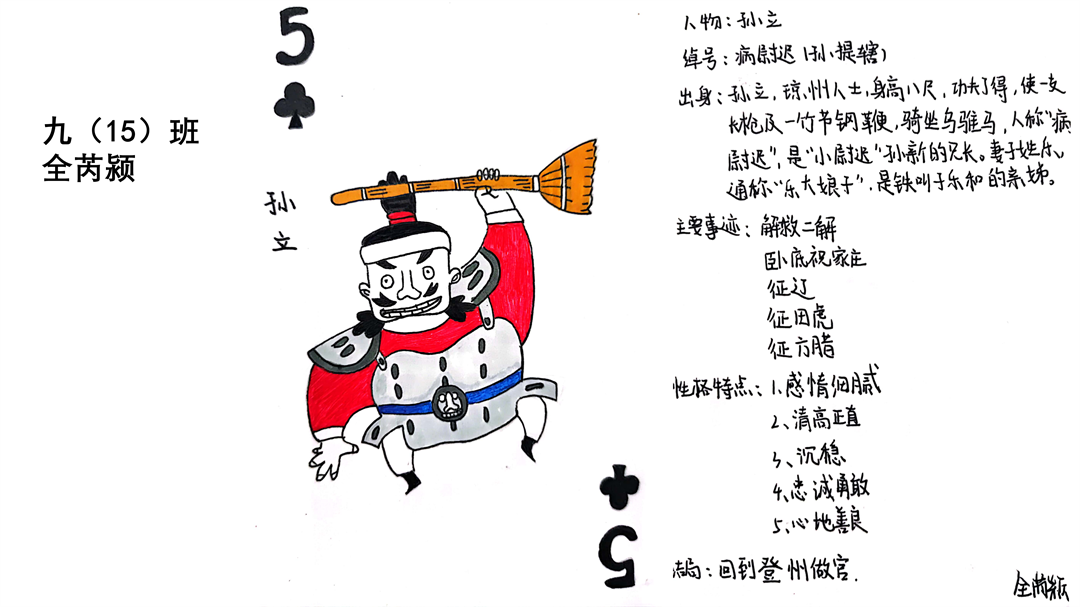 九（15）班
全芮颍
5
孙
立
5
人物：孙立
绰号：病尉迟（孙提辖）
出身：孙立，琼州人士，身高八尺，功夫了得，使一支
长枪及一竹节钢鞭，骑坐乌骓马，人称“病
尉迟”，是“小尉迟”孙新的兄长。妻子姓乐，
通称“乐大娘子”，是铁叫子乐和的亲姊。
主要事迹：解救二解
卧底祝家庄
征辽
征田虎
征方腊
性格特点：1、感情细腻
2、清高正直
3、沉稳
4、忠诚勇敢
5、心地善良
结局：回到登州做官.
全芮颍